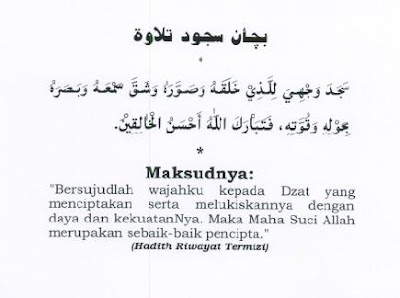 بچاءن سجود تلاوة
*
سَجَدَ وَجْهِيَ لِلَّذِيْ خَلَقَهُ وَصَوَّرَهُ وَشَقَّ سَمْعَهُ وَبَصَرَهُ
بِحَوْلِهِ وَقُوَّتِهِ، فَتَبَارَكَ اللّٰهُ أَحْسَنُ الْخَالِقِيْنَ.
*
Maksudnya:
"Bersujudlah wajahku kepada Dzat yang
menciptakan serta melukiskannya dengan
daya dan kekuatanNya. Maka Maha Suci Allah
merupakan sebaik-baik pencipta."
(Hadith Riwayat Termizi)